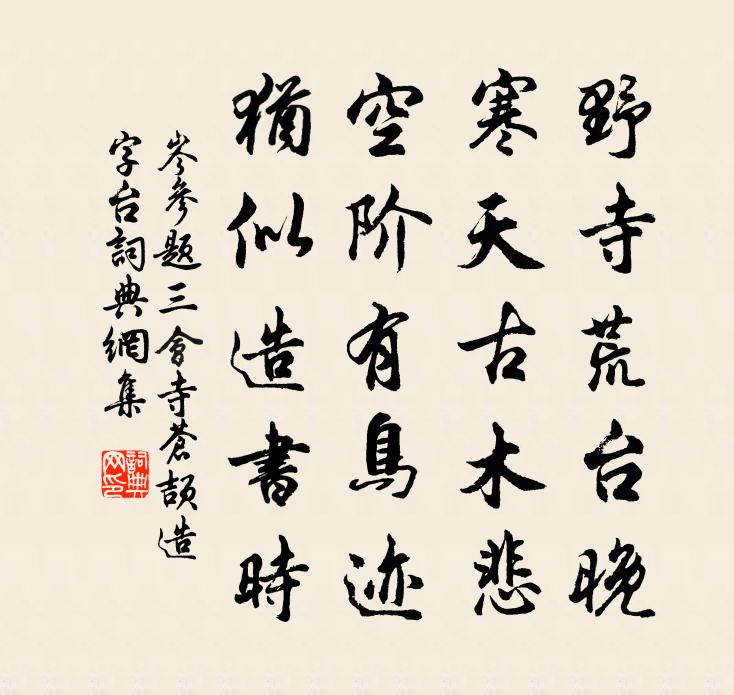 野寺荒台晚
寒天古木悲
空阶有鳥迹
猶似造書時
岑參题三會寺蒼頡造
字台詞典網集
詞典
网印